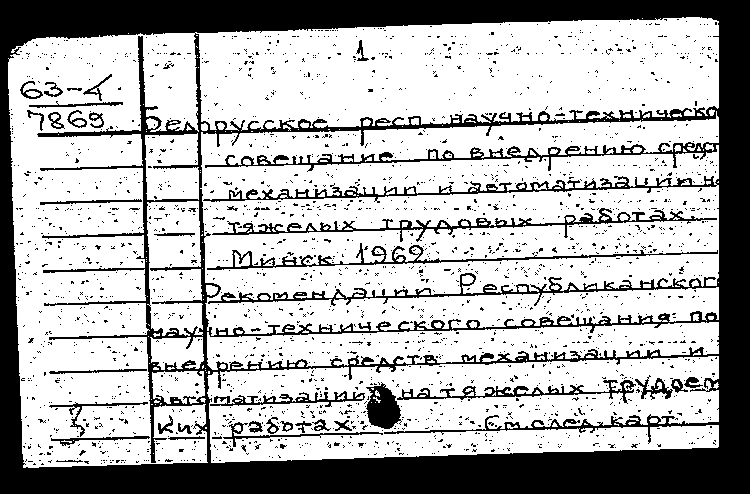 1.
63-4
7869.
Белорусское респ. научно-техническо
совещание по внедрению средст
механизации и автоматизации на
тяжелых трудовых работах.
Минск. 1962.
Рекомендации Республиканского
научно-технического совещания по
внедрению средств механизации и
автоматизации на тяжелых трудоем
ких работах. См. след. карт.